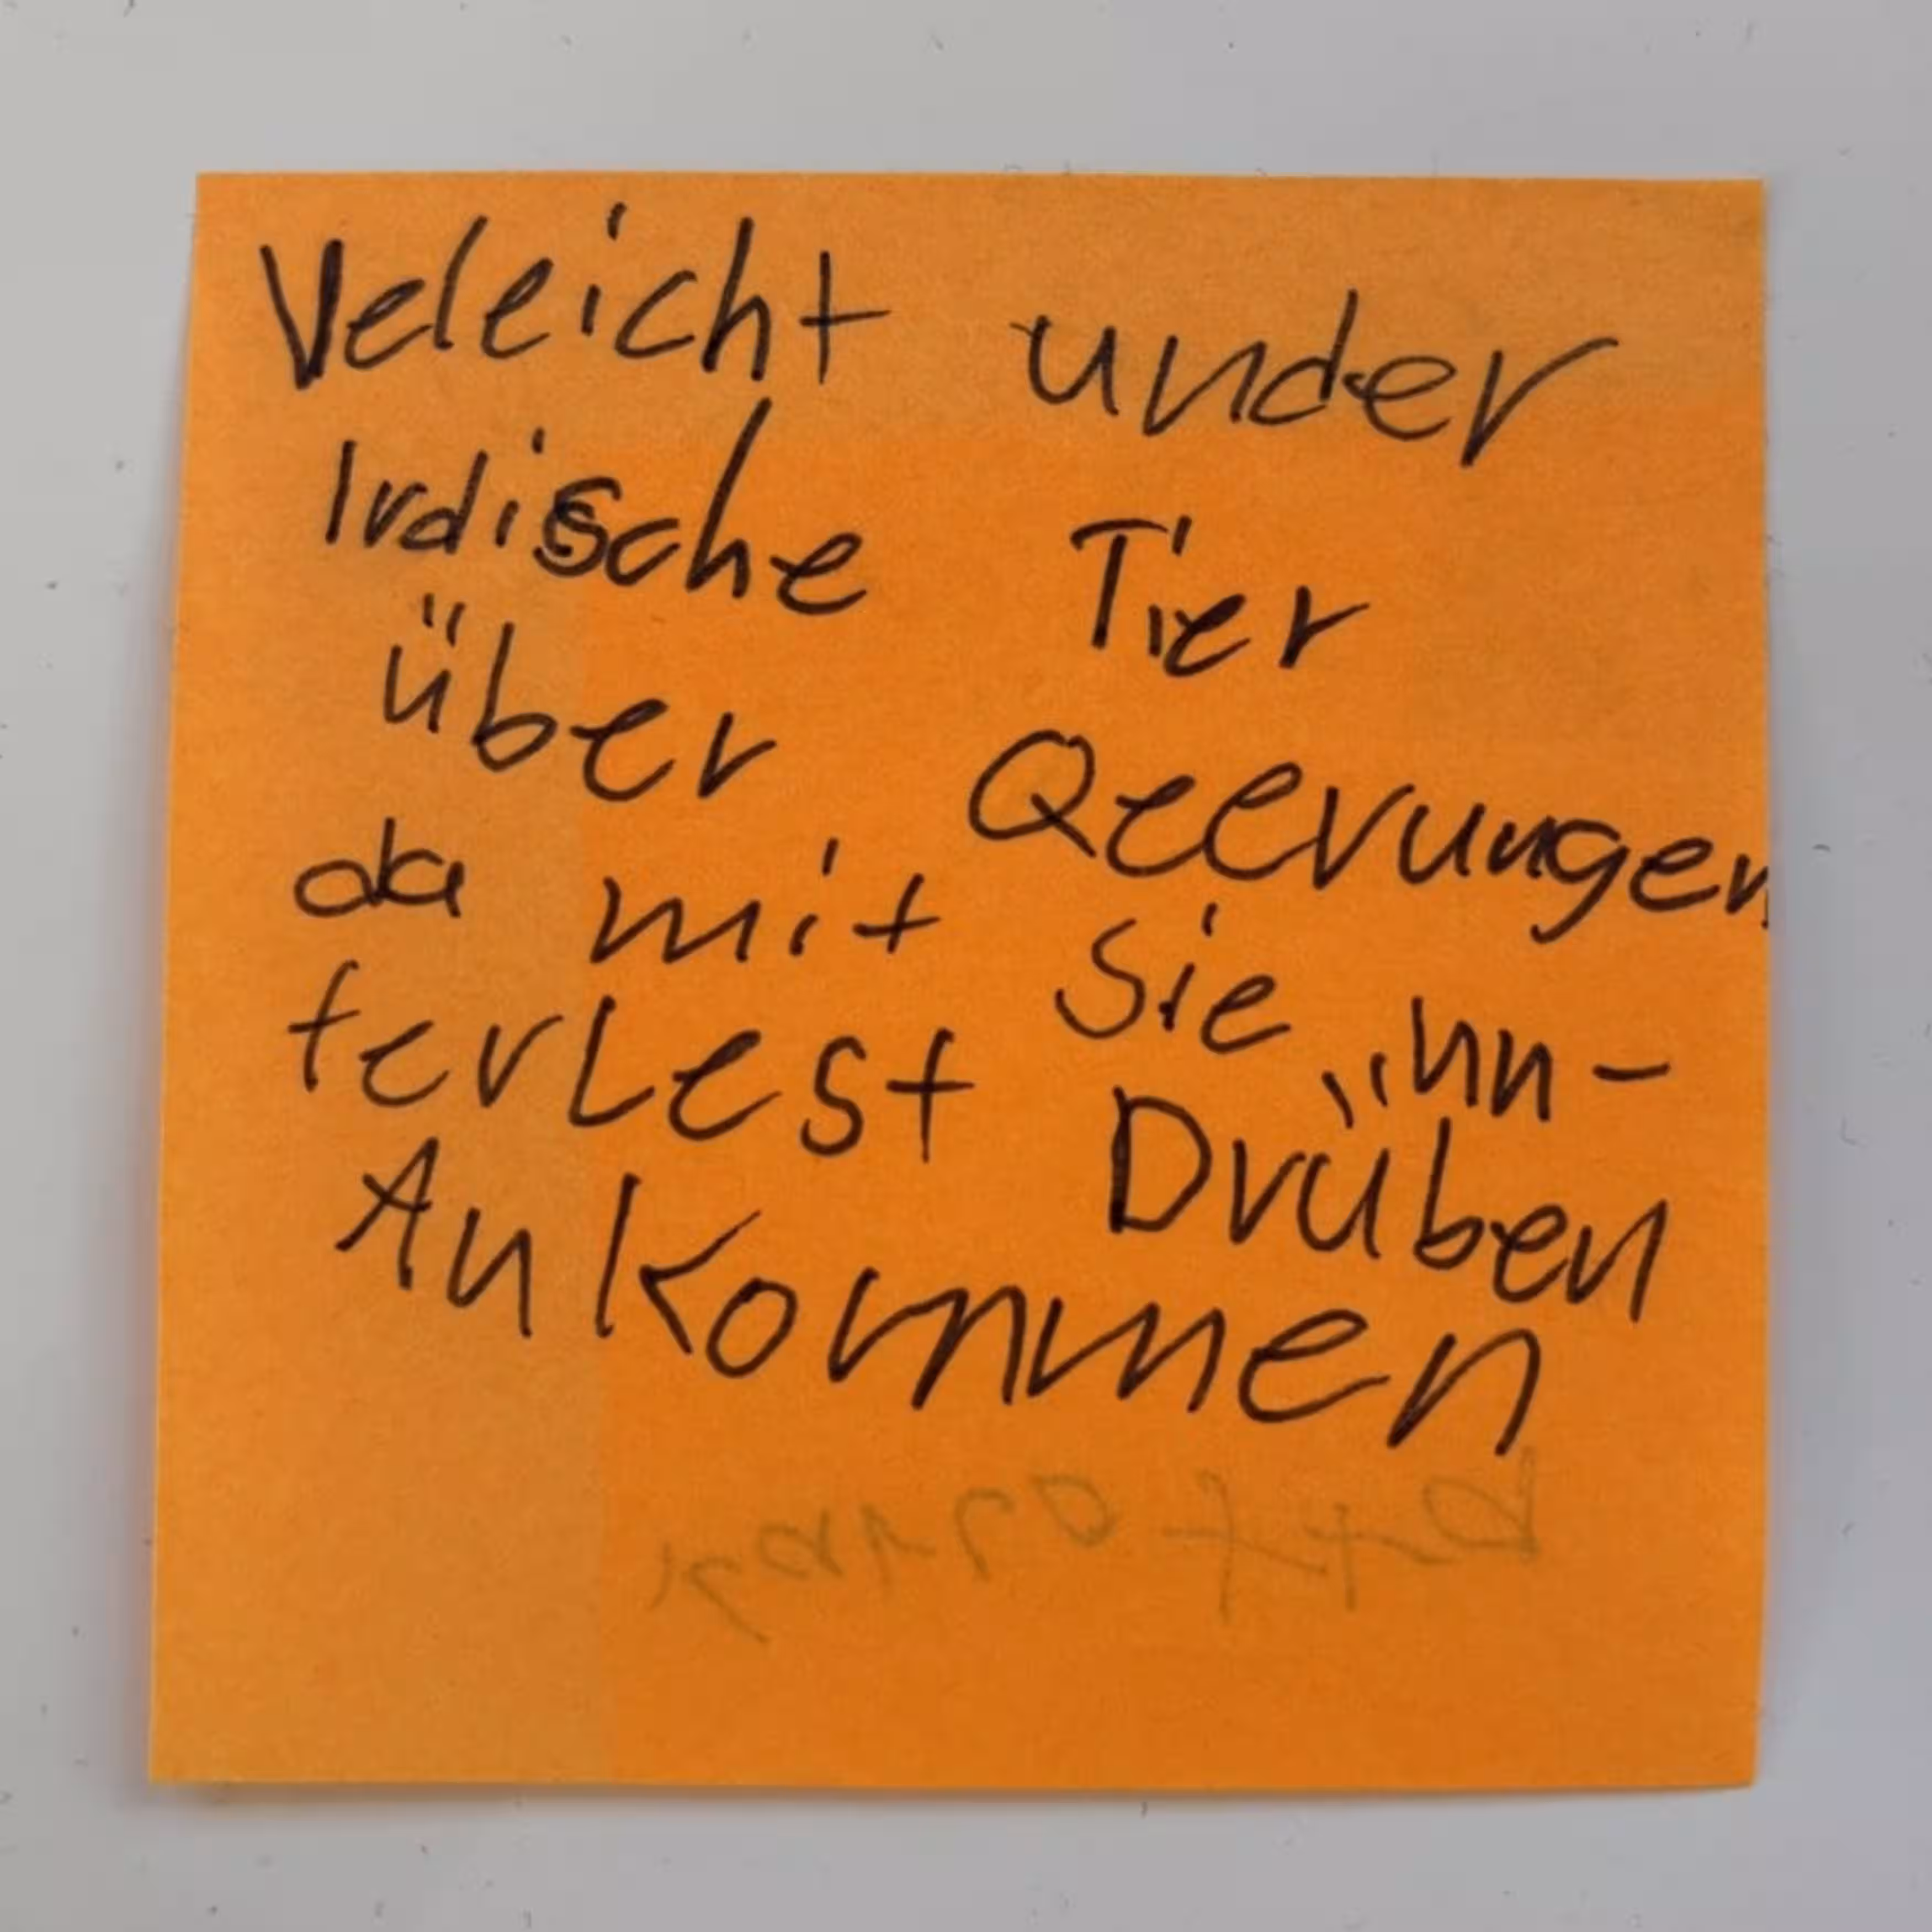 Veleicht under
Irdische Tier
über Qeerungen
da mit Sie un-
terLest Drüben
AnKommen